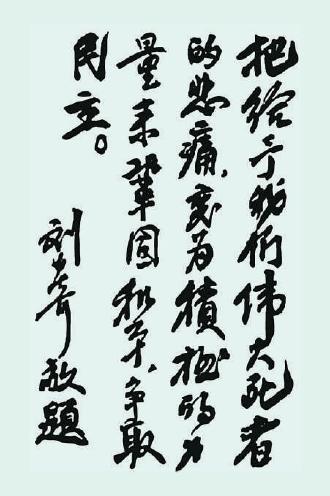 把给予我们偉大死者
的悲痛，变为積极的力
量来鞏固和平、争取
民主。
刘少奇敬題